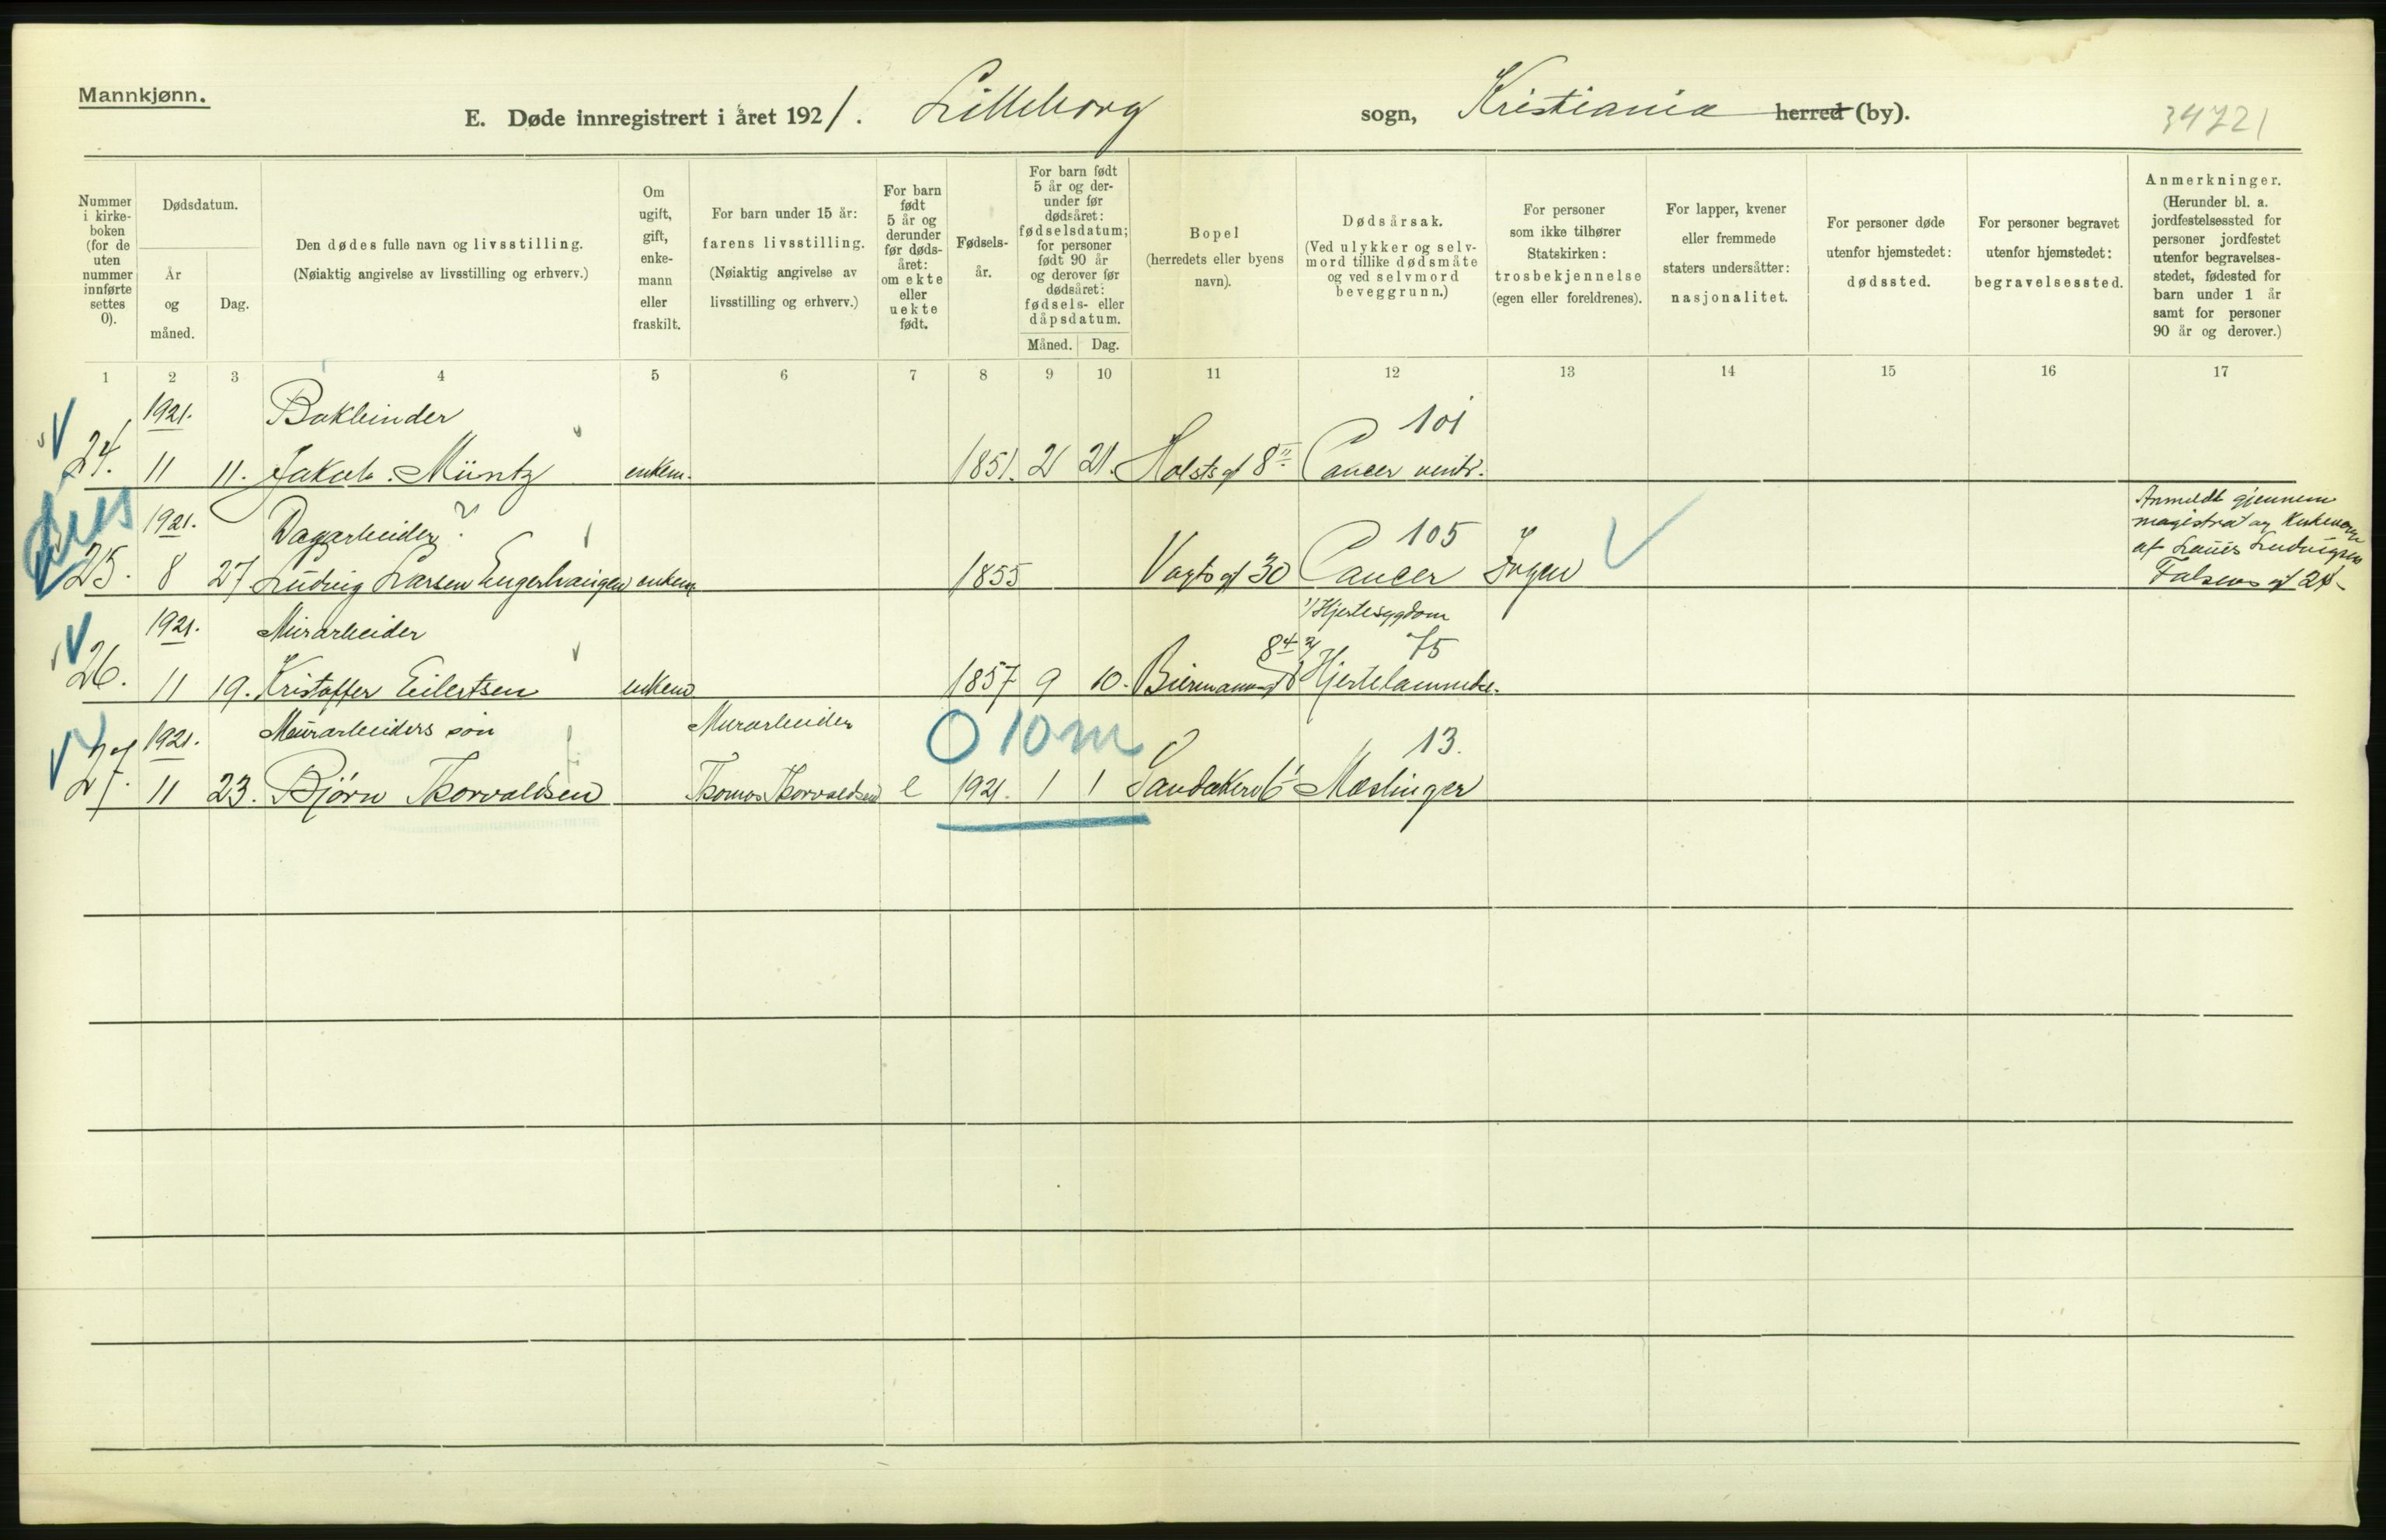 Mannkjønn.
E. Døde innregistrert i året 1921. Lilleborg sogn, Kristiania herred (by).
34721
Nummer i kirke-boken (for de uten nummer innførte settes 0).
Dødsdatum.
År og måned.
Dag.
Den dødes fulle navn og livsstilling.
(Nøiaktig angivelse av livsstilling og erhverv.)
Om ugift, gift, enke-mann eller fraskilt.
For barn under 15 år:
farens livsstilling.
(Nøiaktig angivelse av livsstilling og erhverv.)
For barn født 5 år og derunder før døds-året: om ekte eller uekte født.
Fødsels-år.
For barn født 5 år og der-under før dødsåret: fødselsdatum; for personer født 90 år og derover før dødsåret: fødsels- eller dåpsdatum.
Måned.
Dag.
Bopel
(herredets eller byens navn).
Dødsårsak.
(Ved ulykker og selv-mord tillike dødsmåte og ved selvmord beveggrunn.)
For personer som ikke tilhører Statskirken: trosbekjennelse (egen eller foreldrenes).
For lapper, kvener eller fremmede staters undersåtter: nasjonalitet.
For personer døde utenfor hjemstedet: dødssted.
For personer begravet utenfor hjemstedet: begravelsessted.
Anmerkninger.
(Herunder bl. a. jordfestelsessted for personer jordfestet utenfor begravelses-stedet, fødested for barn under 1 år samt for personer 90 år og derover.)
1 2 3 4 5 6 7 8 9 10 11 12 13 14 15 16 17
1921. Bokbinder 101
24. 11 11. Jakob Müntz enkem. 1851. 2 21. Holsts gt 8 II Cancer ventr.
1921. Dagarbeider? 105
25. 8 27 Ludvig Larsen Engerhaugen enkem 1855 Vogts gt 30 Cancer Ingen
Anmeldt gjennem
magistrat og
af Laurs Ludvigsen
Falsens gt 24
1921. Murarbeider 1) Hjertesygdom 75
26. 11 19. Kristoffer Eilertsen enkem 1857 9 10. Biermannsgt 8 4 2) Hjertelammelse.
1921. Murarbeiders søn Murarbeider 0 10 m 13.
27. 11 23. Bjørn Thorvaldsen Thomas Thorvaldsen e 1921. 1 1 Sandakerv 6 I Meslinger